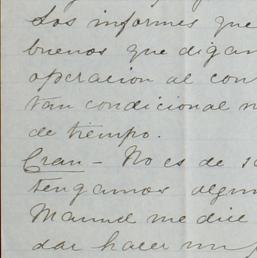 Los informes que
buenos que digan
operacion al con
tan condicional n
de tiempo.
Cran - No es de
tengamos algun
Manuel me dice
dar hacer un